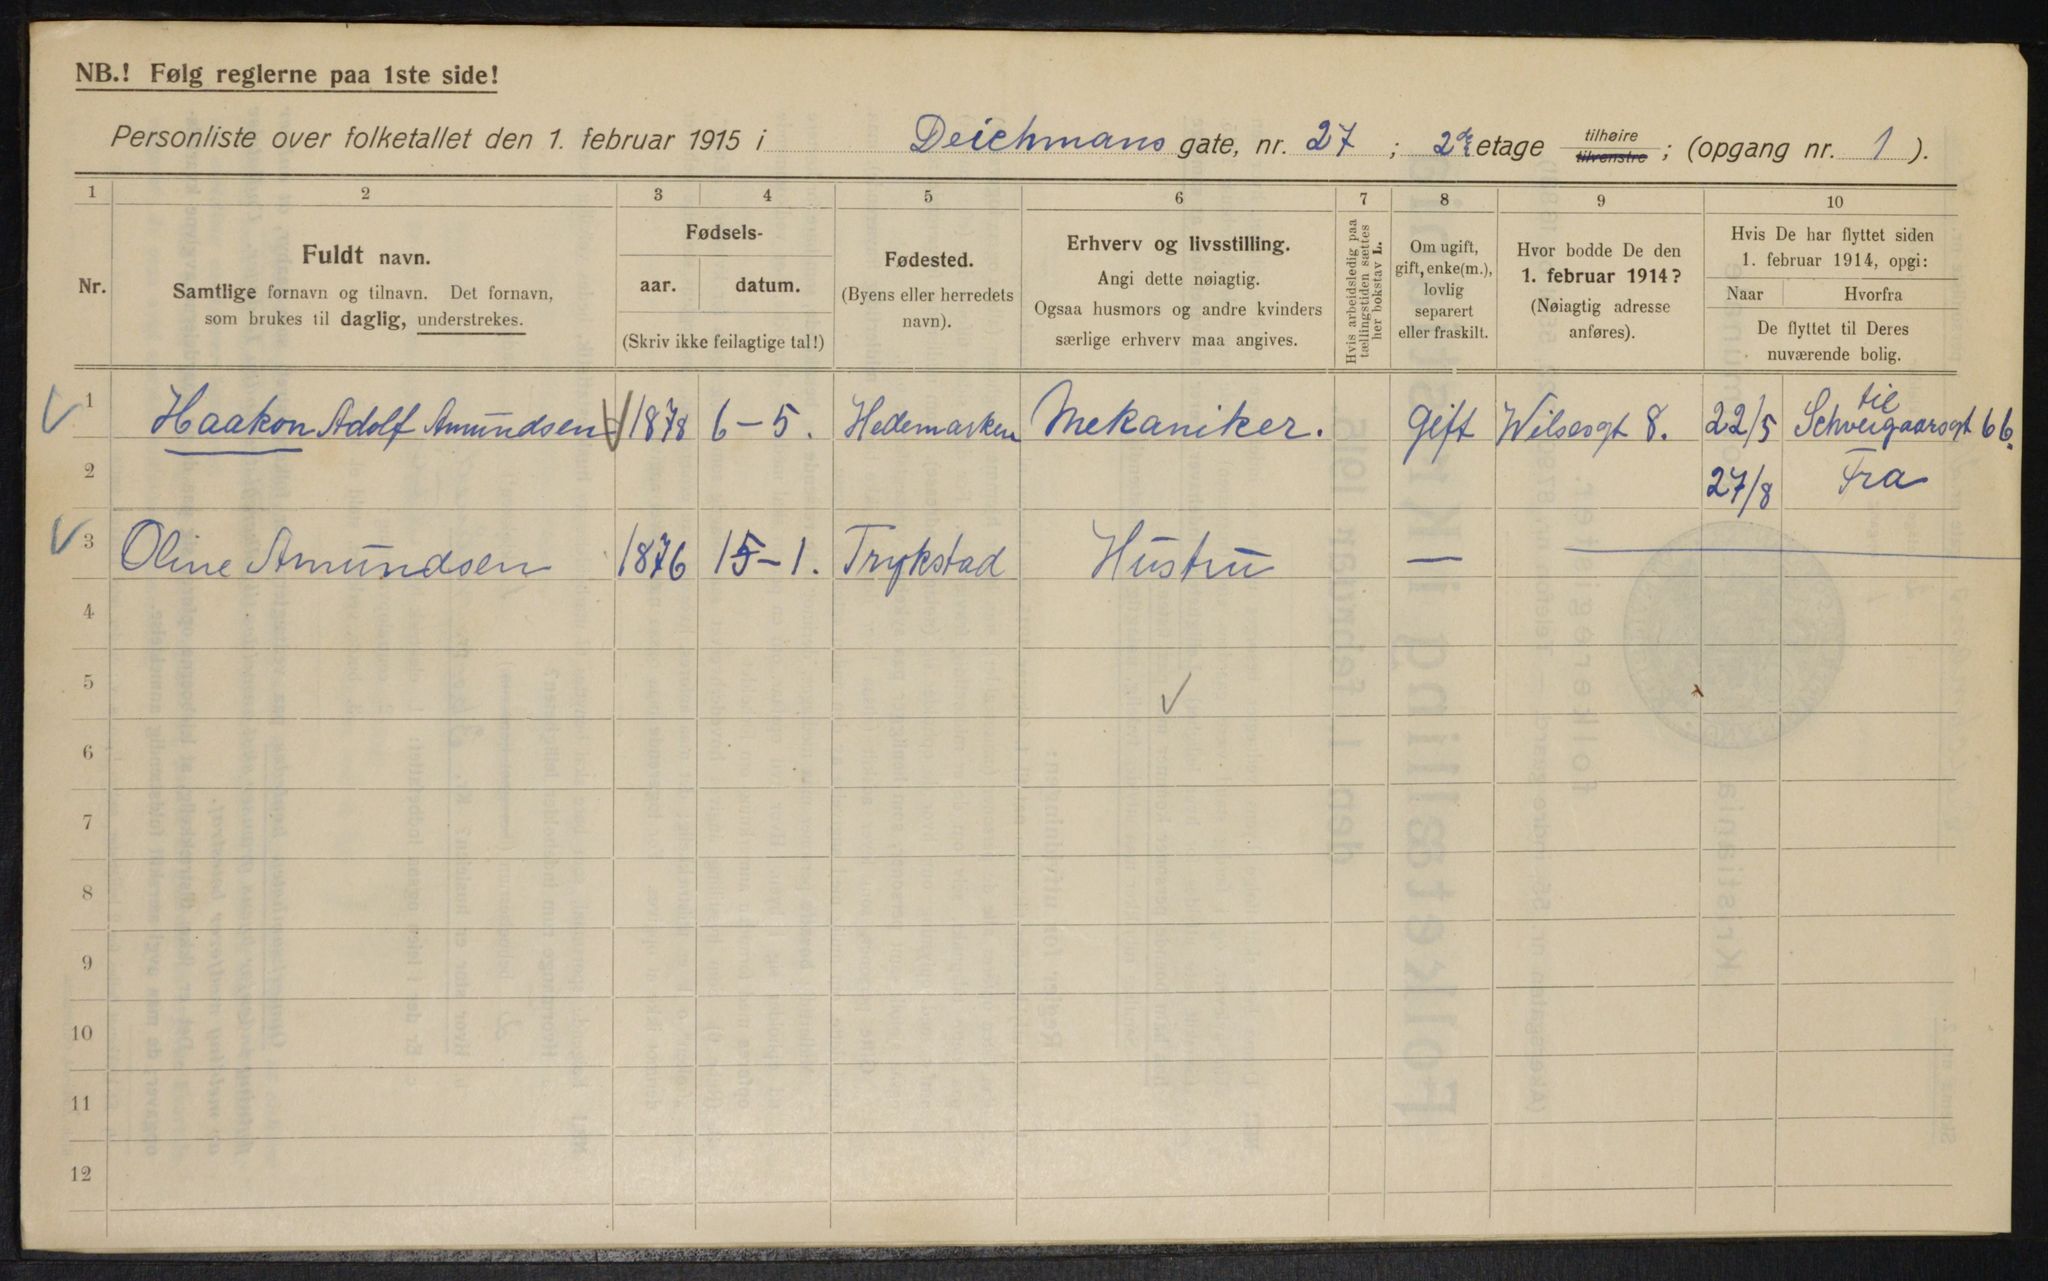 NB.! Følg reglerne paa 1ste side!
Personliste over folketallet den 1. februar 1915 i Deichmans gate, nr. 27 ; 2de etage tilhøire tilvenstre ; (opgang nr. 1 ).
1 2 3 4 5 6 7 8 9 10
Nr.
Fuldt navn.
Samtlige fornavn og tilnavn. Det fornavn,
som brukes til daglig, understrekes.
Fødsels-
aar. datum.
(Skriv ikke feilagtige tal!)
Fødested.
(Byens eller herredets
navn).
Erhverv og livsstilling.
Angi dette nøiagtig.
Ogsaa husmors og andre kvinders
særlige erhverv maa angives.
Hvis arbeidsledig paa
tællingstiden sættes
her bokstav L.
Om ugift,
gift, enke(m.),
lovlig
separert
eller fraskilt.
Hvor bodde De den
1. februar 1914?
(Nøiagtig adresse
anføres).
Hvis De har flyttet siden
1. februar 1914, opgi:
Naar Hvorfra
De flyttet til Deres
nuværende bolig.
1 Haakon Adolf Amundsen 1878 6-5. Hedemarken Mekaniker. Gift Wilsesgt 8. 22/5 til Schveigaarsgt 66.
2 27/8 Fra
3 Oline Amundsen 1876 15-1. Trykstad Hustru —
4
5
6
7
8
9
10
11
12